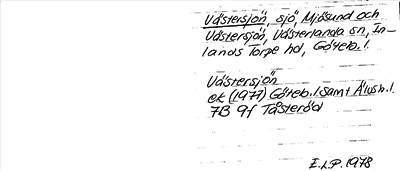 Västersjön, sjö, Mjösund och
Västersjön, Västerlanda sn, In-
lands Torpe hd, Göteb. l.
Västersjön
ek (1977) Göteb. l samt Älvsb. l.
7B 9f Tåsteröd
I.L.P. 1978